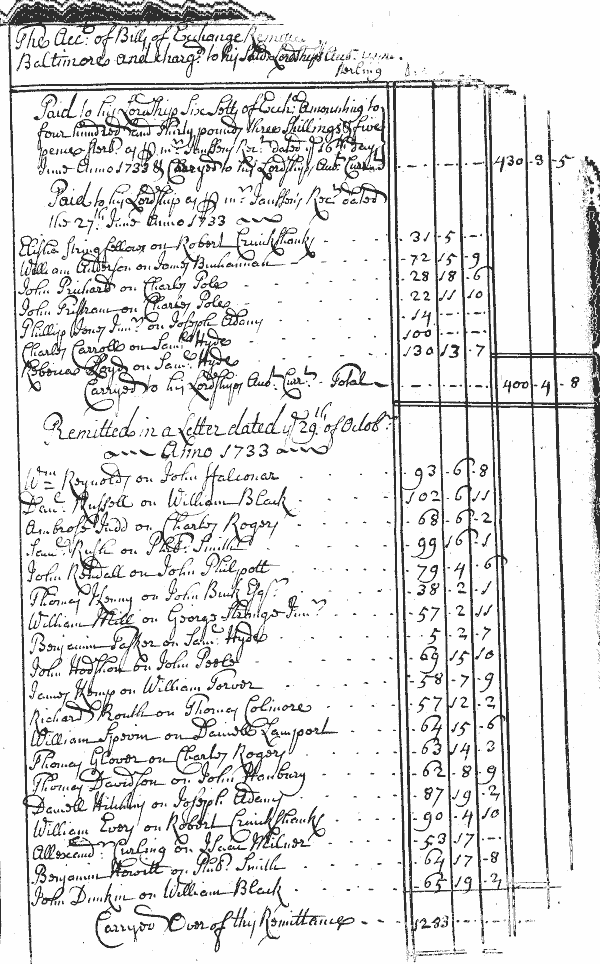 The Acc.t of Bills of Exchange Remitted
Baltimore and charg.d to his said Lordship's
sterling
Paid to his Lordship Six Setts of Exch.a amounting to
four hundred and thirty pounds three Shillings & five
pence sterl.g as p m.r Janssens Rec.t dated y.e 16th day
June Anno 1733 & Carryed to his Lordships Acc.t Curr.t - - - 430 - 3 - 5
Paid to his Lordship as p m.r Janssens Rec.t dated
the 27.th June Anno 1733
Elisha Stringfellow on Robert Cruickshanks - - - 31 - 5 -
William Anderson on James Buchannan - - - 72 15 - 9
John Prichard on Charles Pole - - - 28 18 - 6
John Frissram on Charles Pole - - - 22 11 10
Phillip Jones Jun.r on Joseph Adams - - - 14 - -
Charles Carroll on Sam.l Hyde - - - 100 - -
Rebecca Lloyd on Sam.l Hyde - - - 130 13 - 7
Carryed to his Lordships Acc.t Curr.t Total - - - 400 - 4 - 8
Remitted in a Letter dated y.e 29.th of Octob.r
Anno 1733
W.m Reynolds on John Falconar - - - 93 - 6 - 8
Dan.l Russell on William Black - - - 102 - 6 11
Ambrose Judd on Charles Rogers - - - 68 - 6 - 2
Sam.l Rush on Phb.s Smith - - - 99 16 - 1
John Rendall on John Philpott - - - 79 - 4 - 6
Thomas Kenny on John Buck Esq.r - - - 38 - 2 - 1
William Mill on George Strange Jun.r - - - 57 - 2 11
Benjamin Tasker on Sam.l Hyde - - - 5 - 2 - 7
John Hodshon on John Peele - - - 69 15 10
James Kemp on William Torver - - - 58 - 7 - 9
Richard Routh on Thomas Colmore - - - 57 12 - 2
William Spevin on Daniell Lamport - - - 64 15 - 6
Thomas Glover on Charles Rogers - - - 63 14 - 3
Thomas Davidson on John Hanbury - - - 62 - 8 - 9
Daniell Hitchins on Joseph Adams - - - 87 19 - 2
William Every on Robert Cruickshanks - - - 90 - 4 10
Allexand.r Curling on Isaac Milner - - - 53 17 -
Benjamin Howitt on Phb.s Smith - - - 64 17 - 8
John Dunkin on William Black - - - 65 19 - 2
Carryed Over of this Remittance - - - 1283